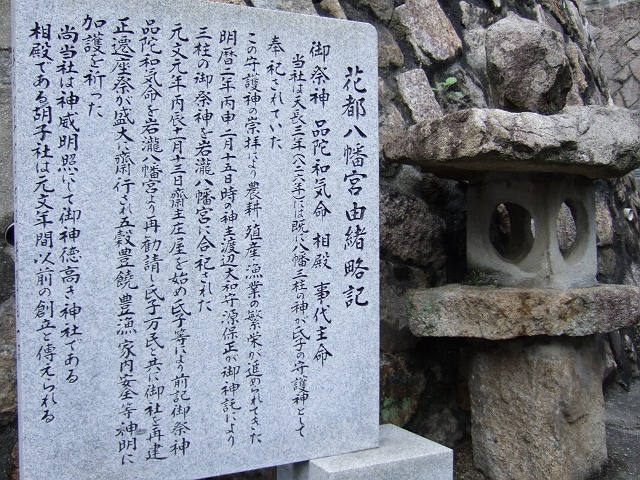 花都八幡宮由緒略記
御祭神 品陀和気命 相殿 事代主命
当社は天長三年(八二六年)には既に八幡三柱の神が氏子の守護神として
奉祀されていた
この守護神の崇拝により農耕殖産漁業の繁栄が進められてきた
明暦二年丙申二月十五日時の神主渡辺大和守源保正が御神託により
三柱の御祭神を岩瀧八幡宮に合祀された
元文元年丙辰十一月十三日斎主庄屋を始め氏子等により前記御祭神
品陀和気命を岩瀧八幡宮より再勧請し氏子万民と共に御社を再建
正遷座祭が盛大に齋行され五穀豊饒豊漁家内安全等神明に
加護を祈った
尚当社は神威明照にして御神徳高き神社である
相殿である胡子社は元文年間以前の創立と傳えられる